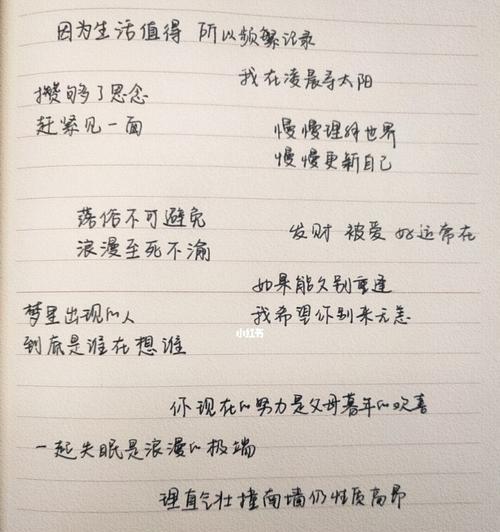 因为生活值得 所以频繁记录
我在凌晨寻太阳
攒够了思念
赶紧见一面
慢慢理解世界
慢慢更新自己
落俗不可避免
浪漫至死不渝
发财 被爱 好运常在
如果能久别重逢
我希望你别来无恙
梦里出现的人
到底是谁在想谁
小红书
你现在的努力是父母暮年的欢喜
一起失眠是浪漫的极端
理直气壮撞南墙仍性质高昂